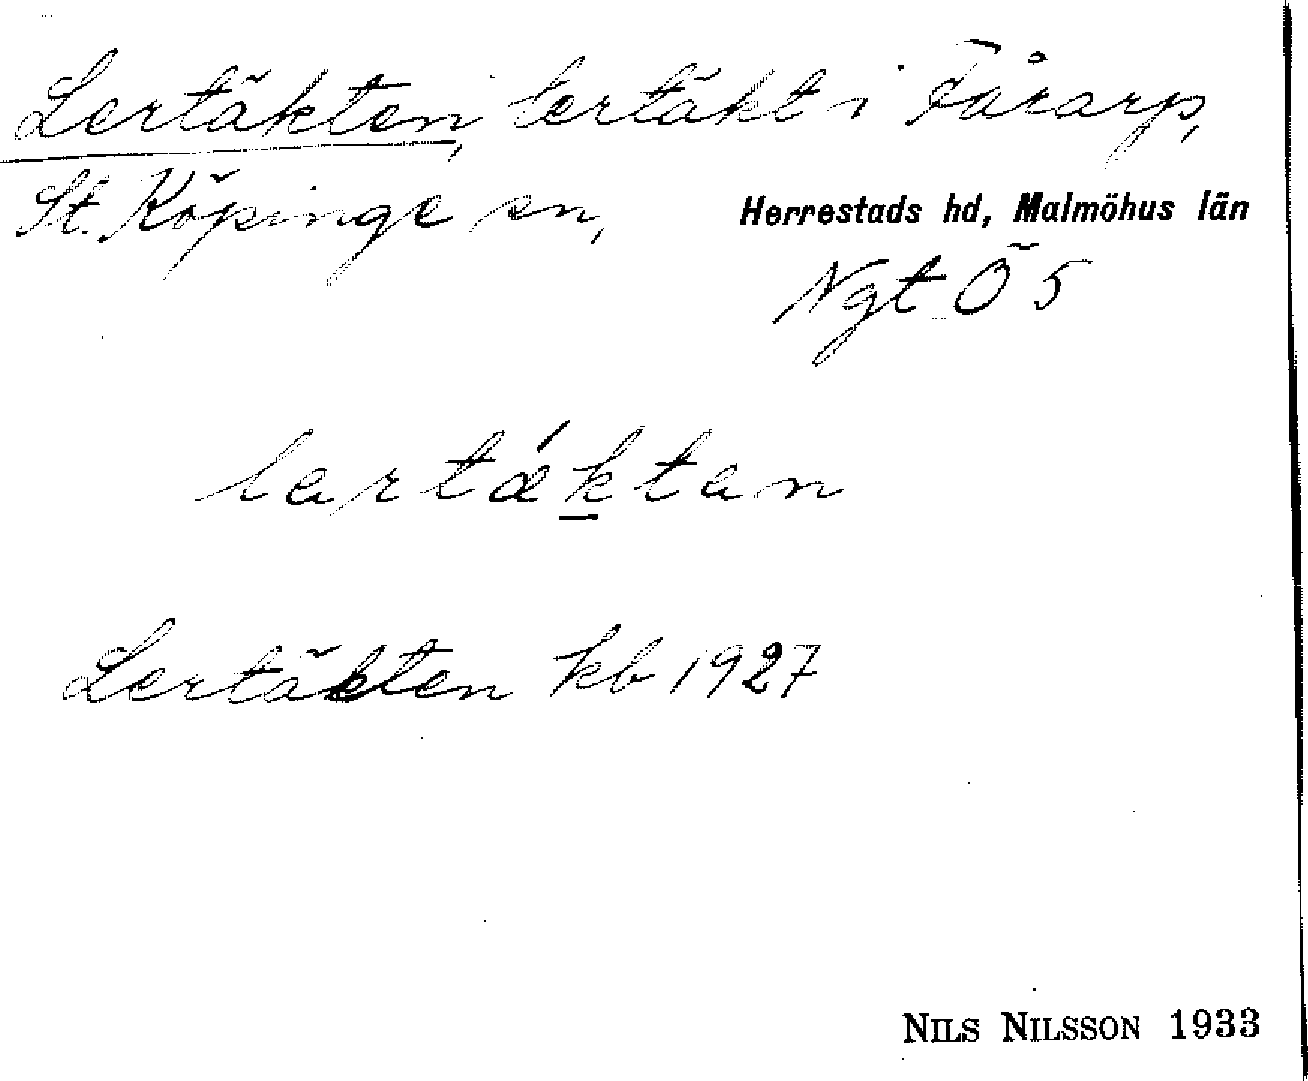 Lertäkten, lertäkt i Fårarp,
St. Köpinge sn,
Herrestads hd, Malmöhus län
Ngt Ö 5
lartǽktan
Lertäkten kb 1927
NILS NILSSON 1933